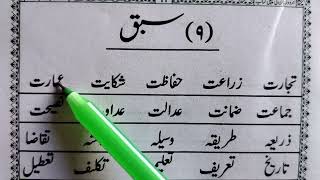 سبق (۹)
تجارت زراعت حفاظت شکایت عمارت
جماعت ضمانت عدالت نصیحت
ذریعہ طریقہ وسیلہ تقاضا
تاریخ تعریف تعلیم تکلف تعطیل